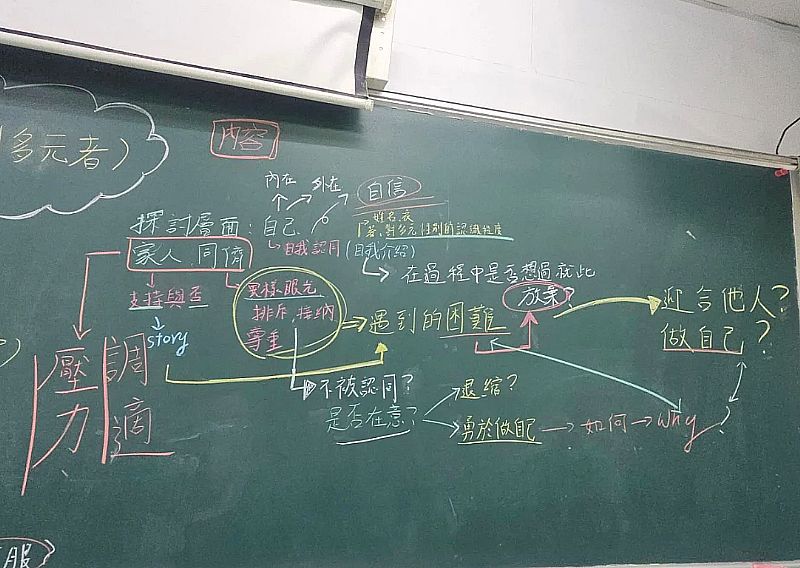 多元者)
內容
內在 外在 自信
姓名,衣
著,對多元性別的認識程度
探討層面:自己
自我認同(自我介紹)
家人、同儕
在過程中是否想過就此
放棄?
支持與否
異樣眼光
排斥,接納
尊重
story
遇到的困難
迎合他人?
做自己?
壓力
調適
不被認同?
是否在意?
退縮?
勇於做自己→如何→why?
服